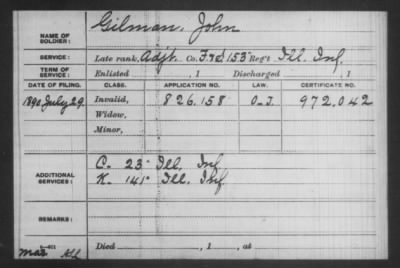 NAME OF SOLDIER: Gilman, John
SERVICE: Late rank, Adjt. Co. F & S, 153" Reg't Ill. Inf.
TERM OF SERVICE: Enlisted , 1 Discharged , 1
DATE OF FILING. CLASS. APPLICATION NO. LAW. CERTIFICATE NO.
1890 July 29. Invalid, 826.158 O-J. 972,042
Widow,
Minor,
ADDITIONAL SERVICES: C- 23" Ill. Inf.
K- 141" Ill. Inf.
REMARKS:
Died , 1 , at